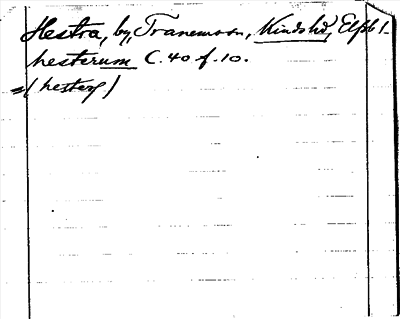 Hestra, by, Tranemo sn, Kinds hd, Elfsb l.
hesterum C. 40 f. 10.
=( hester )